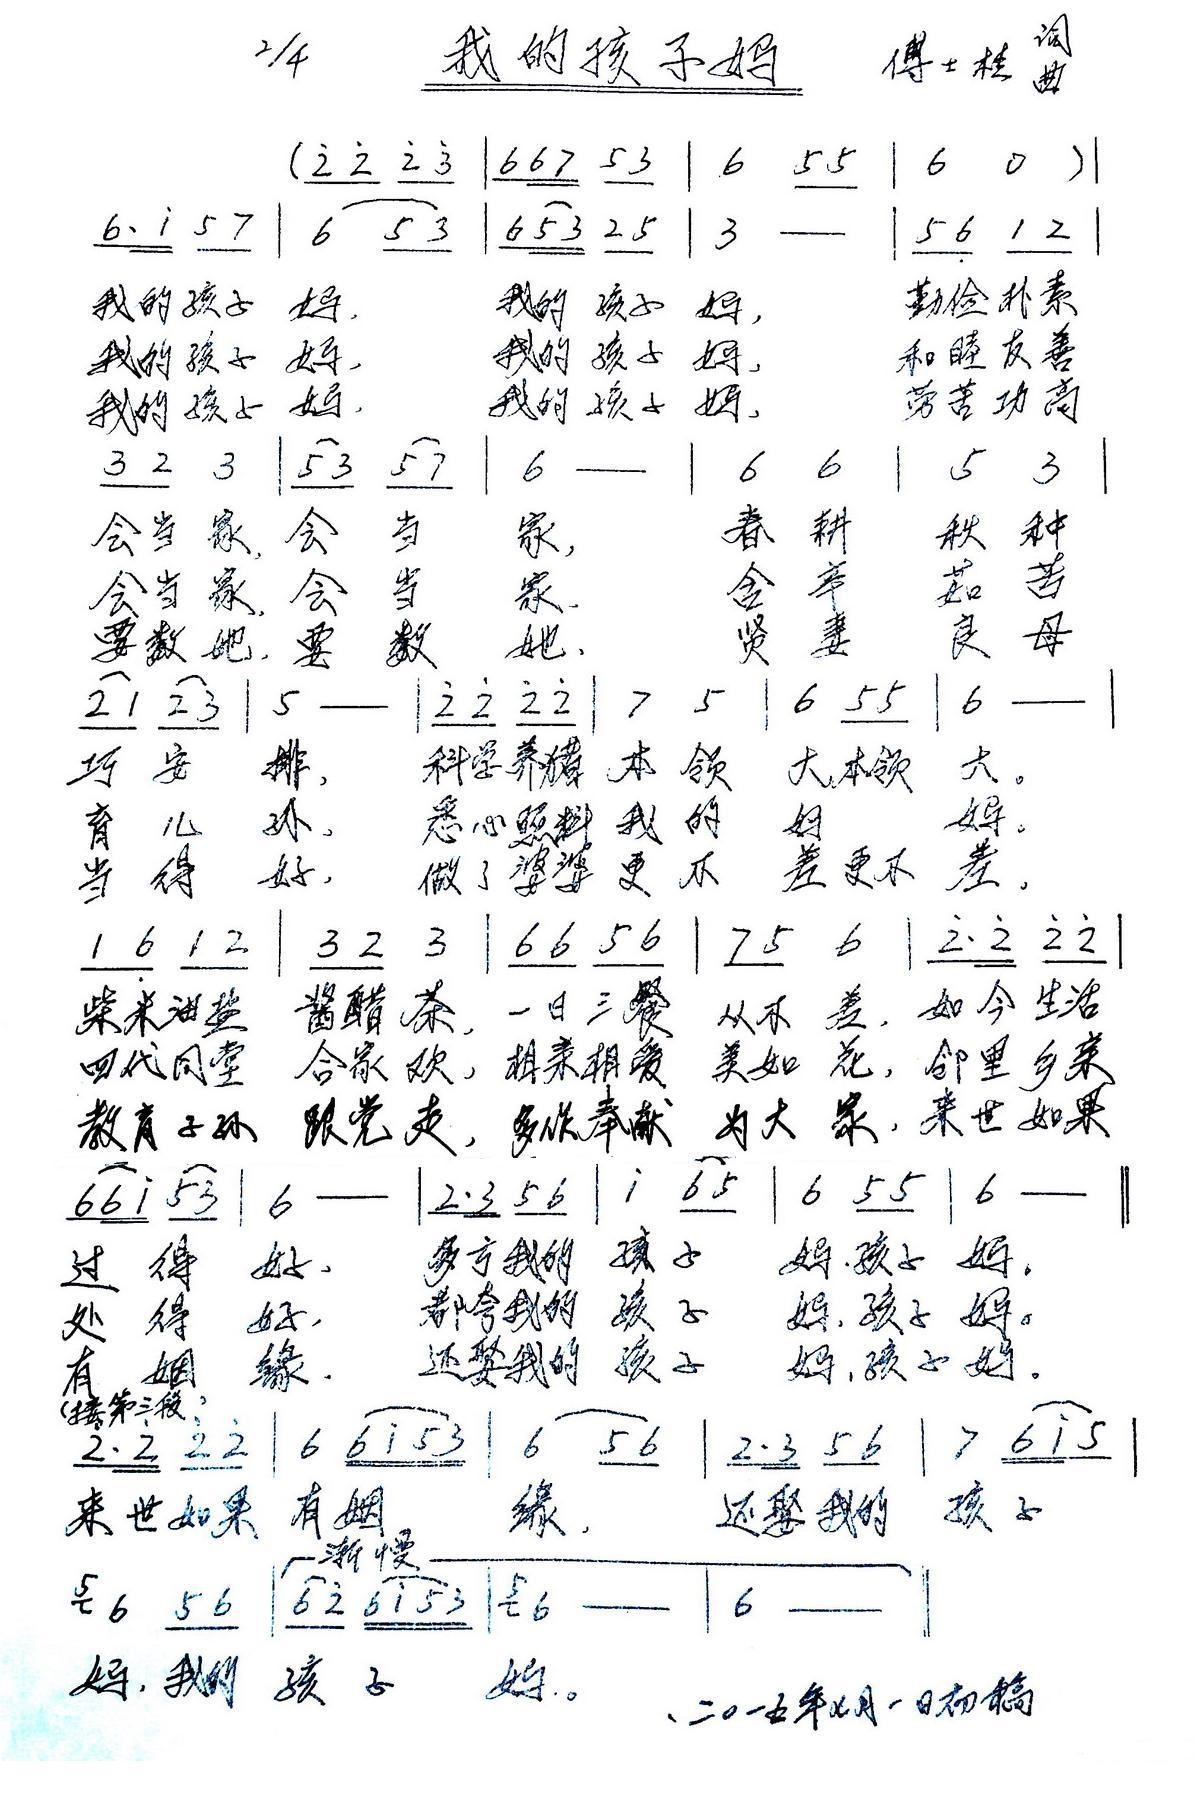 2/4 我的孩子妈 傅士桂 词曲
(2̇2̇ 2̇3̇ | 667 53 | 6 55 | 6 0 ) |
6·i 57 | 6 53 | 653 25 | 3 — | 56̣ 12 |
我的孩子 妈, 我的孩子 妈, 勤俭朴素
我的孩子 妈, 我的孩子 妈, 和睦友善
我的孩子 妈, 我的孩子 妈, 劳苦功高
32 3 | 53 57 | 6 — | 6 6 | 5 3 |
会当家, 会当 家, 春耕 秋种
会当家, 会当 家. 含辛 茹苦
要数她, 要数 她. 贤妻 良母
21 23 | 5 — | 2̇2̇ 2̇2̇ | 7 5 | 6 55 | 6 — |
巧安 排, 科学养猪 本领 大,本领 大。
育儿 孙, 悉心照料 我的 妈 妈。
当得 好, 做了婆婆 更不 差更不 差,
16̣ 12 | 32 3 | 66 56 | 75 6 | 2̇·2̇ 2̇2̇ |
柴米油盐 酱醋茶, 一日三餐 从不差, 如今生活
四代同堂 合家欢, 相亲相爱 美如花, 邻里乡亲
教育子孙 跟党走, 多做奉献 为大家, 来世如果
66i 53 | 6 — | 2·3 56 | i 65 | 6 55 | 6 — ‖
过得 好. 多亏我的 孩子 妈.孩子 妈.
处得 好, 都夸我的 孩子 妈,孩子 妈。
有姻 缘. 还娶我的 孩子 妈,孩子 妈.
(接第三段)
2̇·2̇ 2̇2̇ | 6 6i53 | 6 56 | 2·3 56 | 7 6i5 |
来世如果 有姻 缘, 还娶我的 孩子
渐慢
5 6 56 | 62̇ 6i53 | 5 6 — | 6 — ‖
妈, 我的 孩子 妈。
二〇一五年七月一日初稿